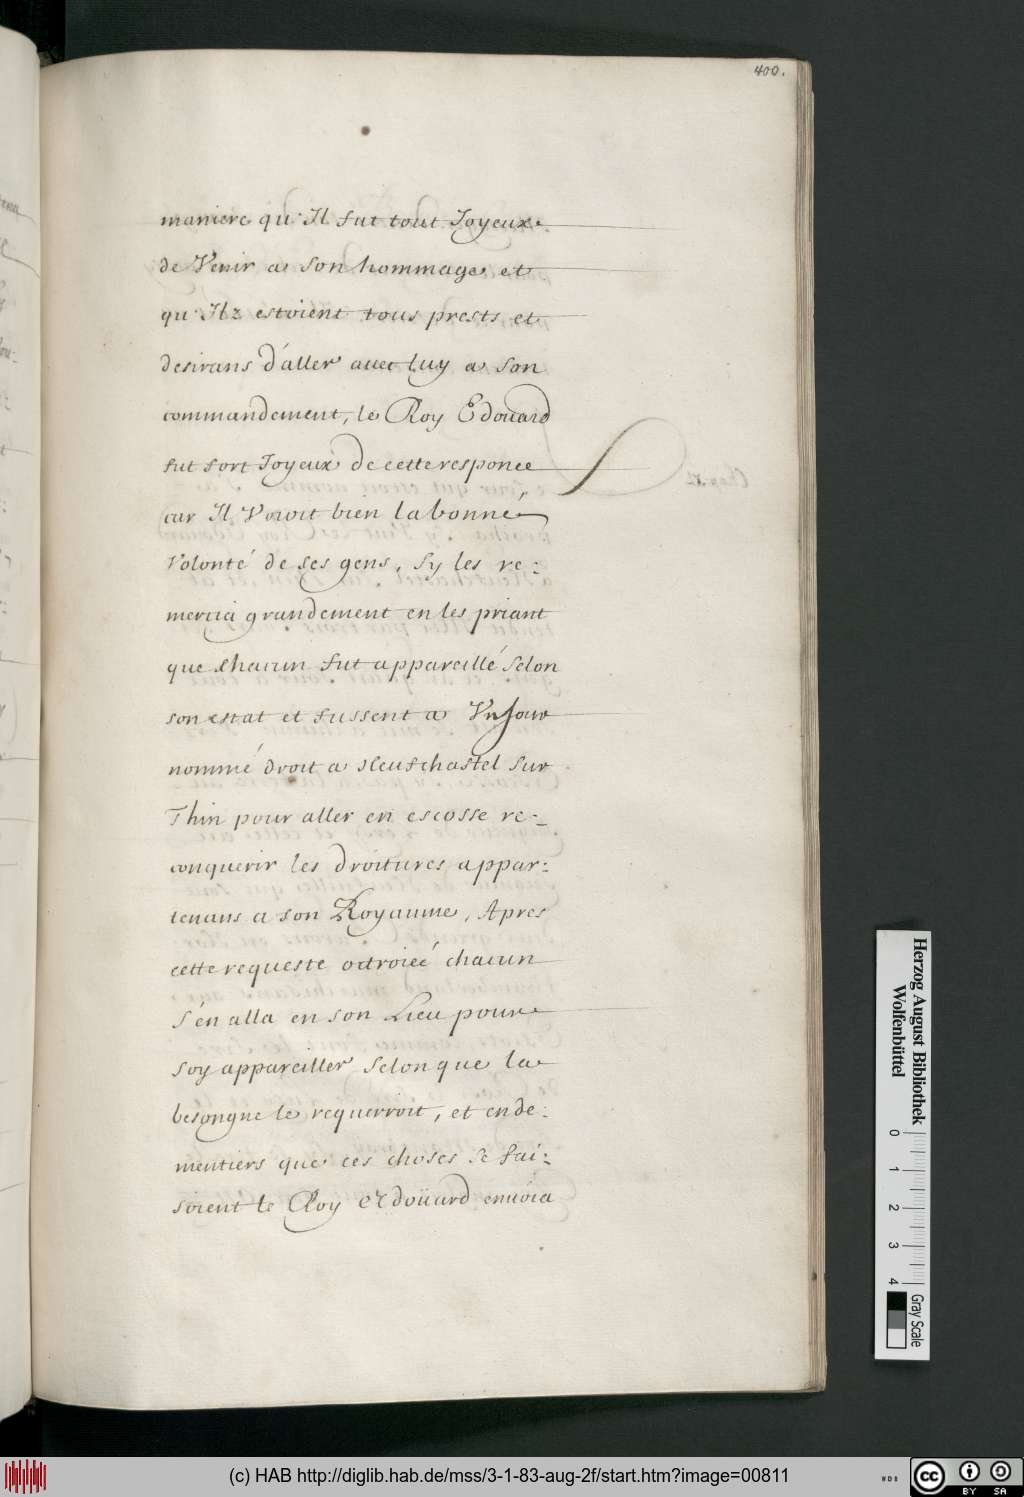 400.
maniere qu'Il fut tout Joyeux
de Venir a son hommage et
qu'Ilz estoient tous prests et
desirans d'aller avec luy a son
commandement, le Roy Edouard
fut fort Joyeux de cette responce
car Il Voioit bien la bonne
Volonté de ses gens, sy les re-
mercia grandement en les priant
que chacun fut appareillé selon
son estat et fussent a Vn jour
nommé droit a Neufchastel sur
Thin pour aller en escosse re-
conquerir les droitures appar-
tenans a son Royaume, Apres
cette requeste octroiée chacun
s'en alla en son Lieu pour
soy appareiller selon que la
besongne le requerroit, et ende-
mentiers que ces choses se fai-
soient le Roy Edoüard envoia
Herzog August Bibliothek
Wolfenbüttel
0 1 2 3 4
Gray Scale
(c) HAB http://diglib.hab.de/mss/3-1-83-aug-2f/start.htm?image=00811
cc BY SA